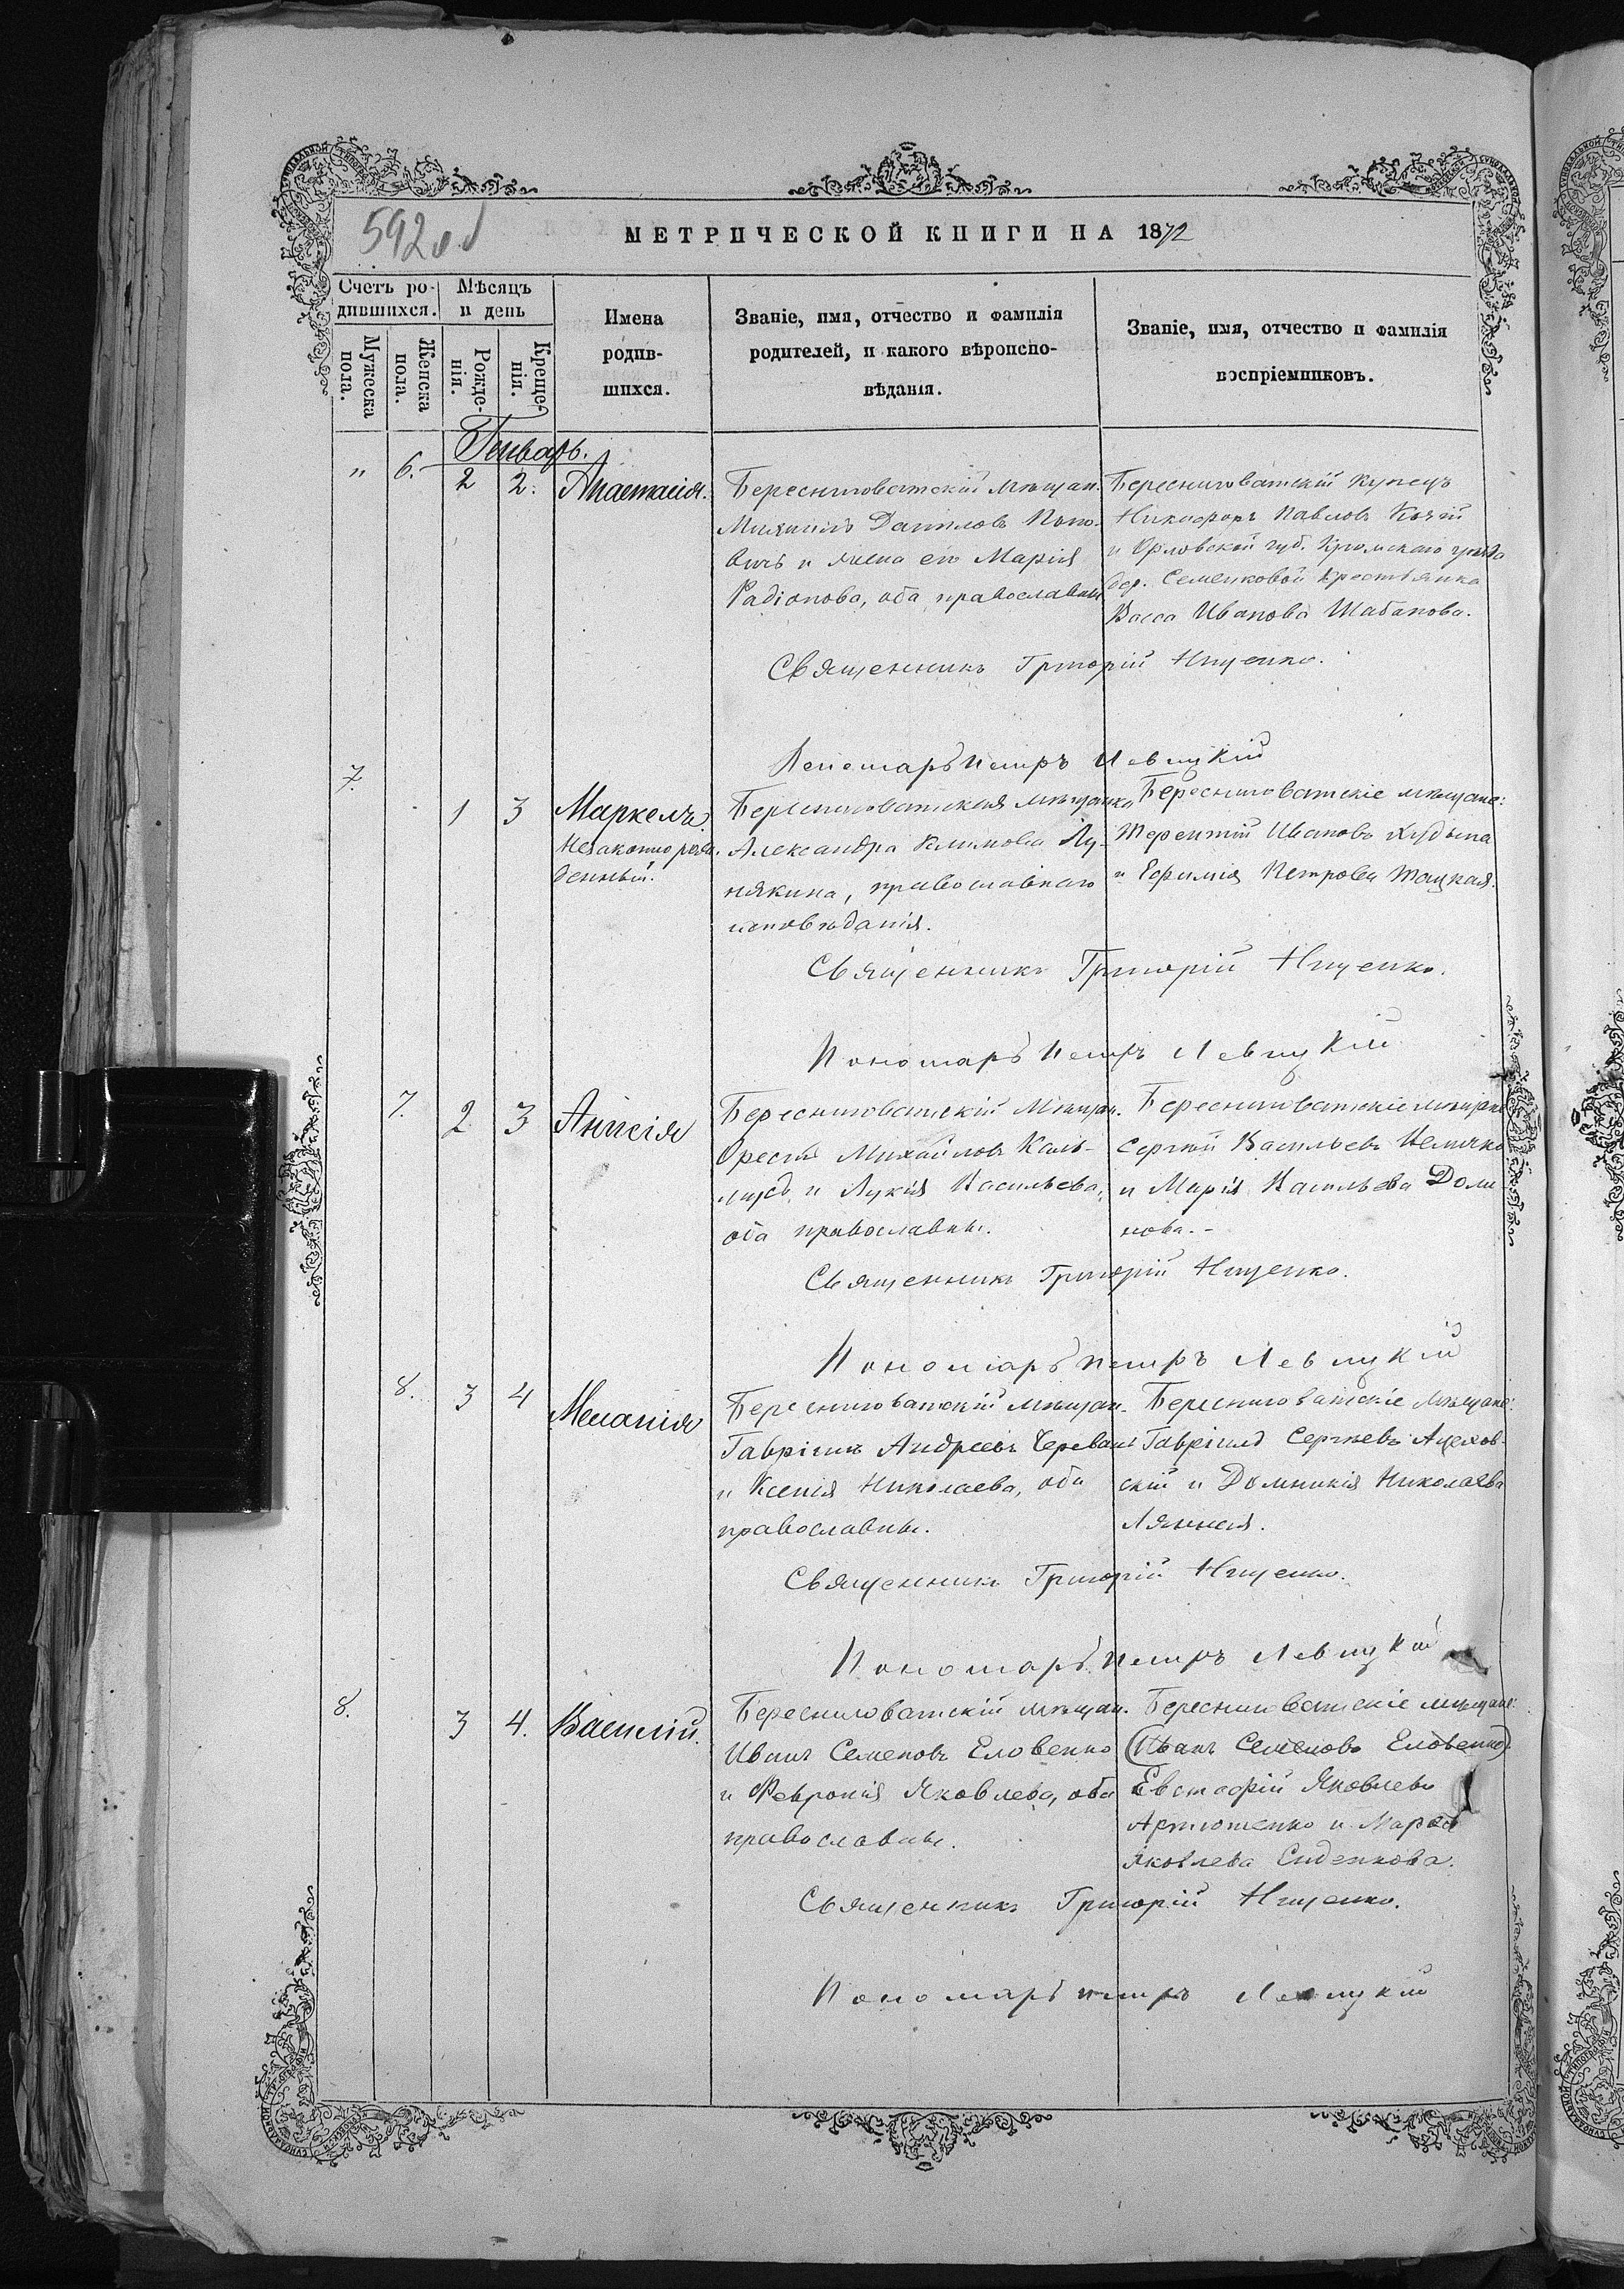 592 об
МЕТРИЧЕСКОЙ КНИГИ НА 1872
Счетъ ро-
дившихся.
Мѣсяцъ
и день
Мужеска
пола.
Женска
пола.
Рожде-
нія.
Креще-
нія.
Имена
родив-
шихся.
Званіе, имя, отчество и фамилія
родителей, и какого вѣроиспо-
вѣданія.
Званіе, имя, отчество и фамилія
воспріемниковъ.
Генварь.
" 6. 2 2. Анастасія.
Береснеговатскій мѣщан.
Михаилъ Даниловъ Попо-
вичъ и жена его Марія
Радіонова, оба православны
Береснеговатскій купецъ
Никифоръ Павловъ
и Орловской губ. Кромскаго уѣзда
дер. Семенковой крестьянка
Васса Иванова Шабанова.
Священникъ Григорій Нищенко.
Пономарь Петръ Левицкій
7. 1 3 Маркелъ.
Незаконно рож-
денный.
Береснеговатская мѣщанка
Александра Климова Лу-
някина, православнаго
исповѣданія.
Береснеговатскіе мѣщане:
Терентій Ивановъ
и Ефимія Петрова
Священникъ Григорій Нищенко.
Пономарь Петръ Левицкій
7. 2 3 Анисія
Береснеговатскій мѣщан.
Орестъ Михайловъ Каль-
и Лукія Васильева,
оба православны.
Береснеговатскіе мѣщане
Сергѣй Васильевъ
и Марія Васильева Доли
нова. -
Священникъ Григорій Нищенко.
Пономарь Петръ Левицкій
8. 3 4 Меланія
Береснеговатскій мѣщан.
Гавріилъ Андреевъ Черевань
и Ксенія Николаева, оба
православны.
Береснеговатскіе мѣщане:
Гавріилъ Сергѣевъ
скій и Домникія Николаева
Священникъ Григорій Нищенко.
Пономарь Петръ Левицкій
8. 3 4. Василій.
Береснеговатскій мѣщан.
Иванъ Семеновъ Еловенко
и Февронія Яковлева, оба
православны.
Береснеговатскіе мѣщане:
(Иванъ Семеновъ Еловенко)
Евстафій Яковлевъ
Артюшенко и Марѳа
Яковлева Сиденкова.
Священникъ Григорій Нищенко.
Пономарь Петръ Левицкій